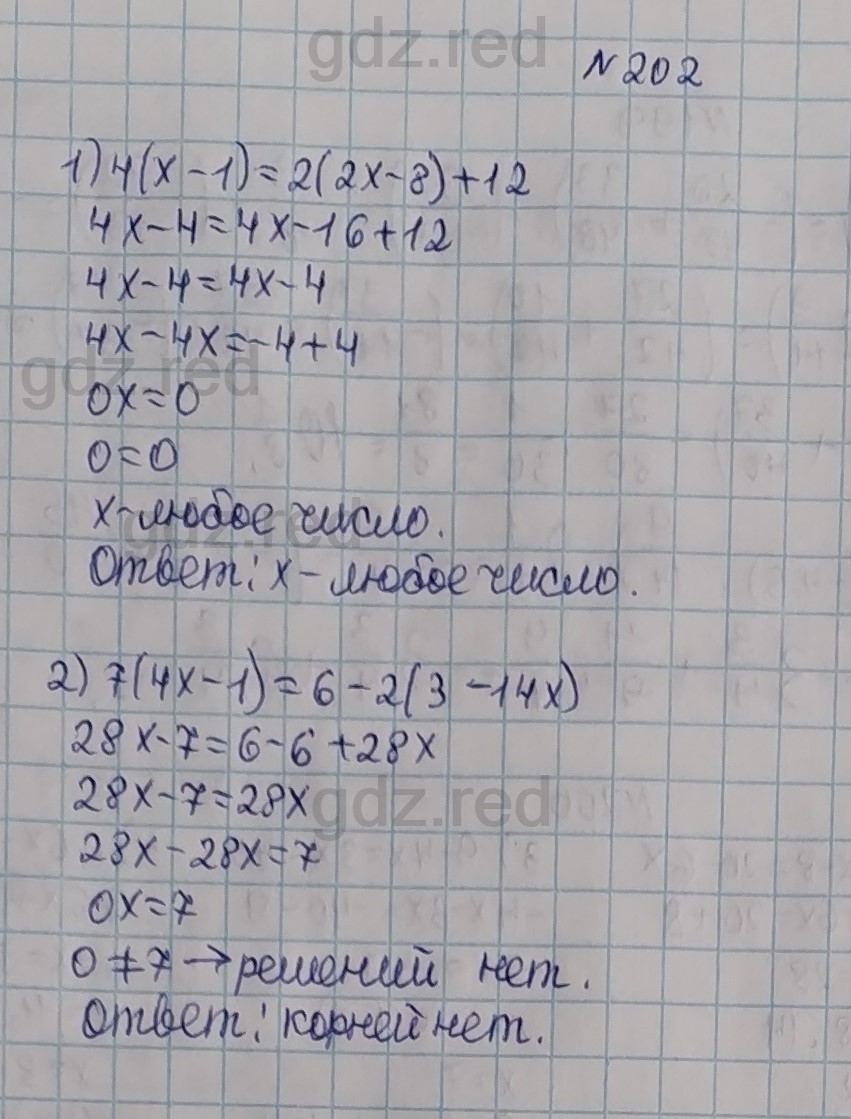 gdz.red
N 202
1) 4(x-1)=2(2x-8)+12
4x-4=4x-16+12
4x-4=4x-4
4x-4x=-4+4
gdz.red
0x=0
0=0
x-любое число.
gdz.red
Ответ: x-любое число.
2) 7(4x-1)=6-2(3-14x)
28x-7=6-6+28x
28x-7=28x
gdz.red
28x-28x=7
0x=7
0≠7→решений нет.
Ответ: корней нет.